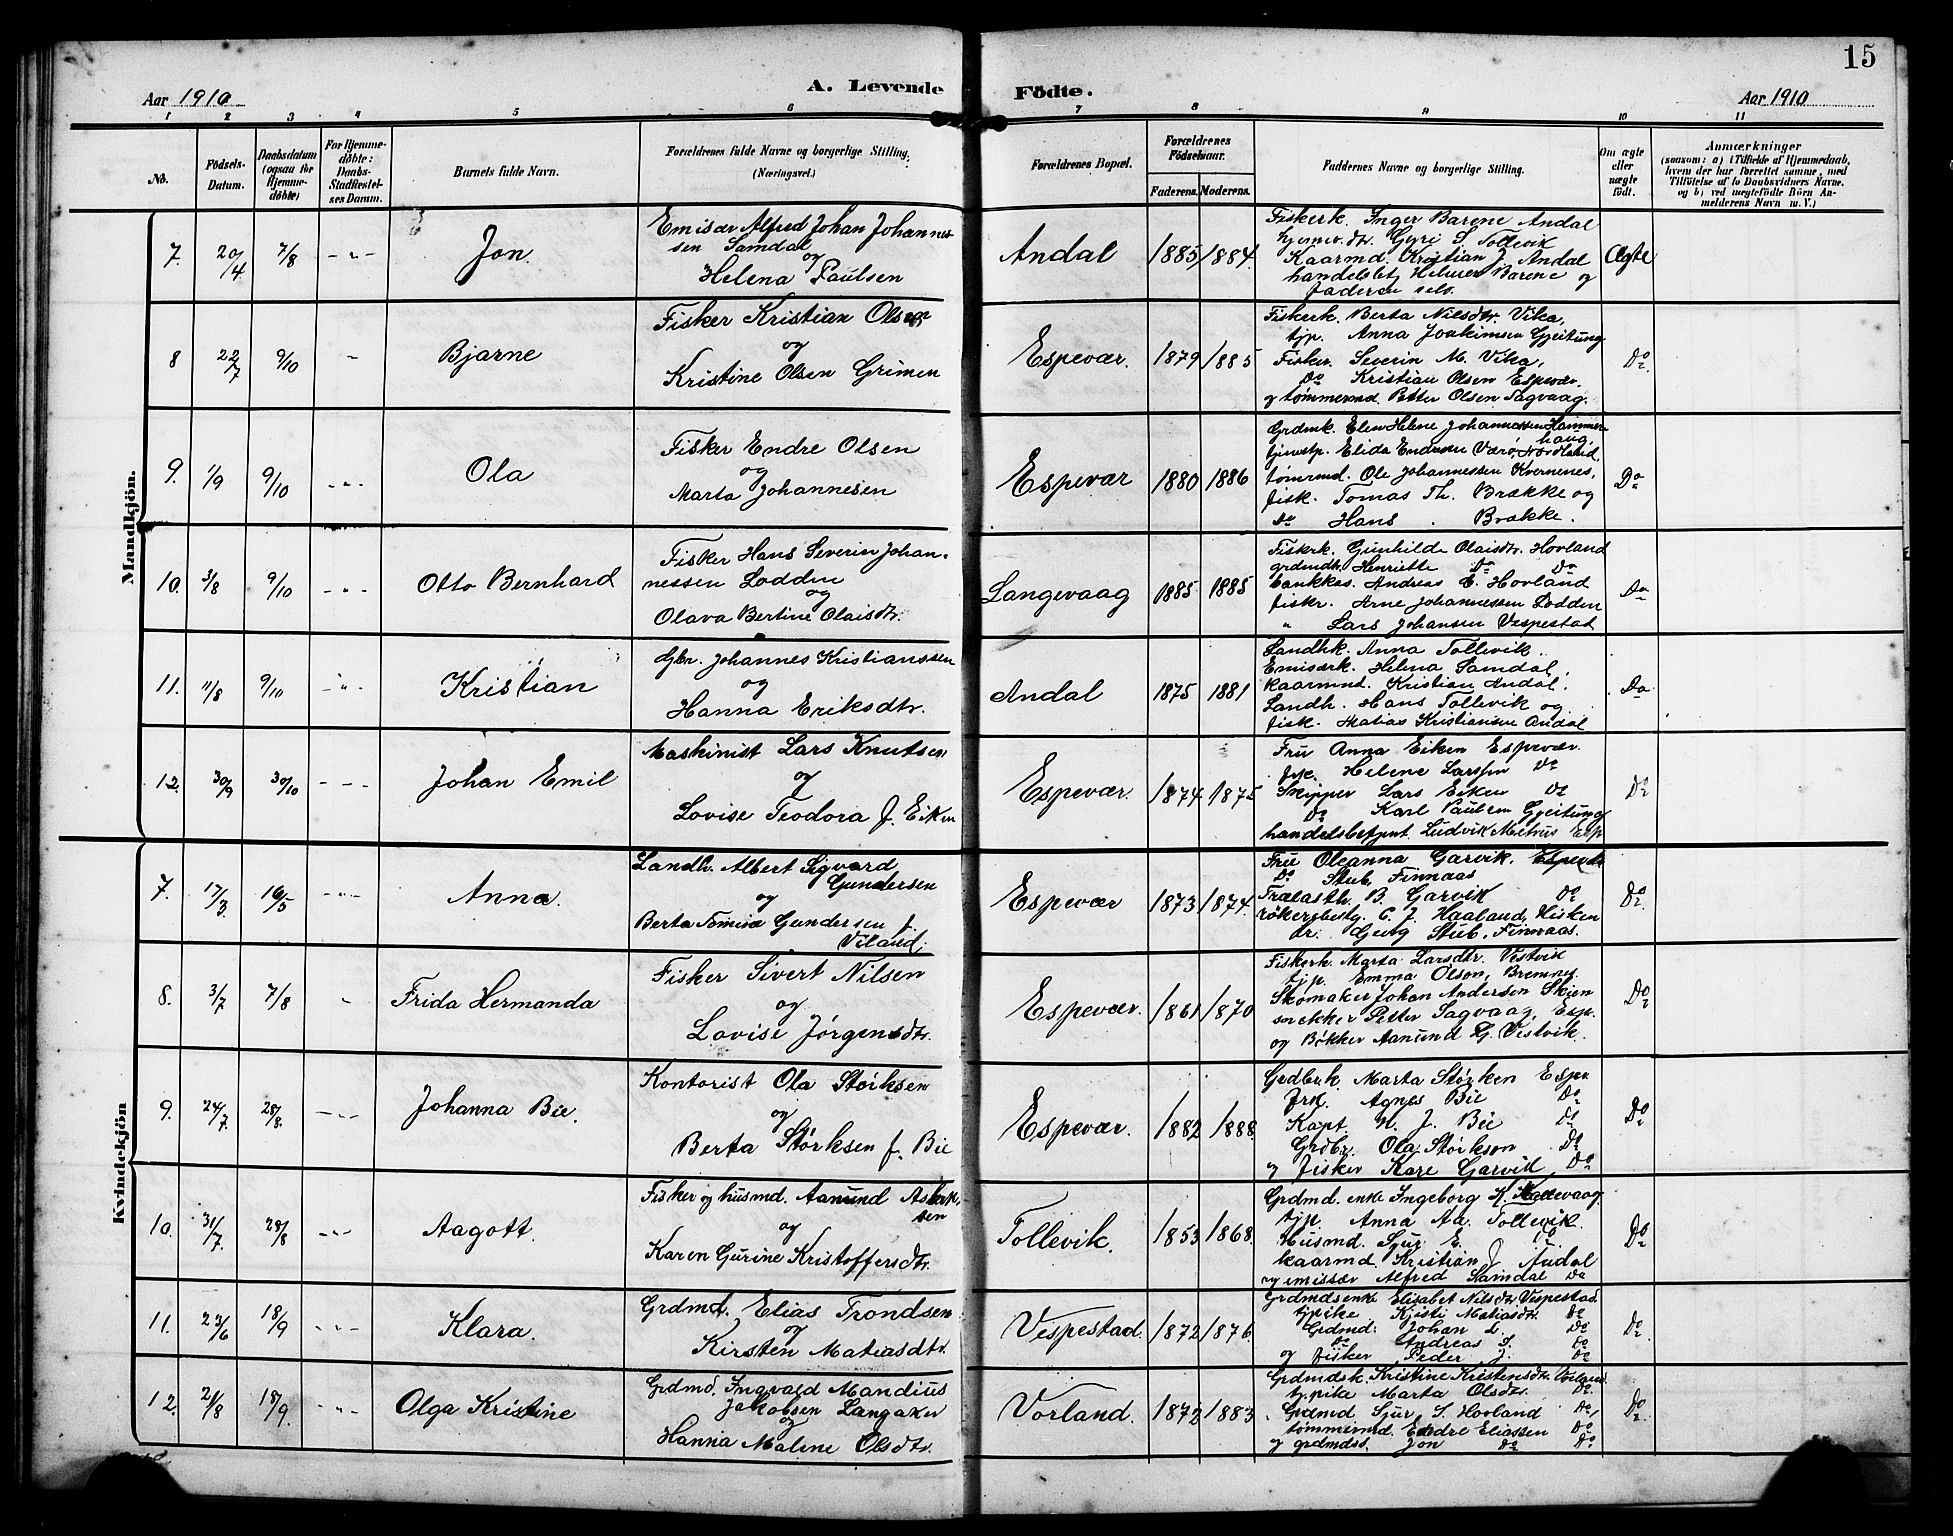 15
Aar 1910
A. Levende
Födte.
Aar 1910
1 2 3 4 5 6 7 8 9 10 11
No.
Födsels-
Datum.
Daabsdatum
(ogsaa for
Hjemme-
döbte)
For Hjemme-
döbte:
Daabs-
Stadfæstel-
ses Datum.
Barnets fulde Navn.
Forældrenes fulde Navne og borgerlige Stilling.
(Næringsvei.)
Forældrenes Bopæl.
Forældrenes
Födselsaar.
Faderens. Moderens.
Faddernes Navne og borgerlige Stilling.
Om ægte
eller
uægte
födt.
Anmærkninger
(saasom: a) i Tilfælde af Hjemmedaab,
hvem der har forrettet samme, med
Tilföielse af to Daabsvidners Navne.
og b) ved uegtefödte Börn An-
melderens Navn m. V.)
Mandkjön.
7. 20/4 7/8 - " - Jon.
Emisær Alfred Johan Johannes-
sen Samdal
og
Helena Paulsen
Andal 1885 1884.
Fiskerk. Inger Barene Andal
hjemv. dtr. Gyri S. Tollevik
Kaarmd. Kristian J. Andal
handelsbetj. Helmer Barene og
faderen selv.
Ægte
8 22/7 9/10 " Bjarne
Fisker Kristian Olsen
og
Kristine Olsen Grimen
Espevær. 1879 1885
Fiskerk. Berta Nilsdtr. Vika,
tjp. Anna Joakimsen Gjeitung
Fisker. Severin M. Vika,
Do Kristian Olsen Espevær.
og tømmermd. Petter Olsen Sagvaag.
Do
9. 1/9 9/10 - " - Ola
Fisker Endre Olsen
og
Marta Johannesen
Espevær 1880 1886
Grdmk. Elen Helene Johannessen Hammer-
haug,
tjenestp. Elida Endresen Værø, Nordland,
tømrmd. Ole Johannessen Kvernenes,
fisk. Tomas Th. Brække og
Do Hans " Brække.
Do
10. 3/8 9/10 - " - Otto Bernhard
Fisker Hans Severin Johan-
nessen Lodden
og
Olava Bertine Olaisdtr.
Langevaag 1885 1885
Fiskerk. Gunhilde Olaisdtr. Hovland
grdmdtr. Henriette Do Do
Andreas E. Hovland
fiskr. Arne Johannessen Lodden
" Lars Johansen Vespestad
Do
11. 11/8 9/10 - " - Kristian
Gbr. Johannes Kristianssen
og
Hanna Eriksdtr.
Andal 1875 1881
Landhk. Anna Tollevik.
Emisærk. Helena Samdal,
kaarmd. Kristian Andal,
Landh. Hans Tollevik og
fisk. Matias Kristiansen Andal
Do
12. 30/9 30/10 - " - Johan Emil
Maskinist Lars Knutsen
og
Lovise Teodora f. Eiken
Espevær. 1874 1875
Fru Anna Eiken Espevær.
frk. Helene Larssen Do
Skipper Lars Eiken Do
Do Karl Paulsen Gjeitung
handelsbetjent. Ludvik Metnus Esp
Do
Kvindekjön
7. 17/3 16/5 - " - Anna.
Landh. Albert Sigvard
Gundersen
og
Berta Tomine Gundersen f.
Viland.
Espevær 1873 1874.
Fru Oleanna Garvik. Espevær
Do Stub, Finnaas
Trælasth. B. Garvik Do
C. J. Haaland, Hisken
dr. Georg Stub, Finnaas.
Do
8. 3/7 7/8 " Frida Hermanda
Fisker Sivert Nilsen
og
Lovise Jørgensdtr.
Espevær. 1861 1870
Fiskerk. Marta Larsdtr. Vestvik
tjp. Emma Olson, Bremnes
Skomaker Johan Andersen Skien
snekker Petter Sagvaag, Esp.
og Bøkker Aamund G. Vestvik.
Do
9. 24/7. 28/8. - " - Johanna Bie.
Kontorist Ola Størksen
og
Berta Størksen f. Bie
Espevær. 1882 1888.
Grdbrk. Marta Størken Espv
Frk. Agnes Bie Do
Kapt. N. J. Bie Do
Grdbr. Ola Størkson Do
og fisker Kare Garvik Do
Do
10. 31/7. 28/8 - " - Aagott.
Fisker og husmd. Aamund Aslak-
sen
og
Karen Gurine Kristoffersdtr.
Tollevik. 1853 1868.
Grdmd. enke Ingeborg K.
tjp. Anna Aa. Tollevik.
Husmd. Sjur E. Do
kaarmd. Kristian J. Andal
og emissær Alfred Samdal Do
Do
11. 23/6 18/9 - " - Klara.
Grdmd. Elias Trondsen
og
Kirsten Matiasdtr.
Vespestad. 1872 1876.
Grdmdsenke Elisabet Nilsdtr Vespestad.
tjpike Kjisti Matiasdtr. Do
Grdmd: Johan L. Do
Do Andreas S. Do
og fisker Peder J. Do
Do
12. 21/8 18/9. - " - Olga Kristine
Grdmd. Ingvald Mandius
Jakobsen Langaker
og
Hanna Malene Olsdtr.
Vorland. 1872 1883
Grdmdsk. Kristine Kristensdtr. Vorland
tjpike Marta Olsdtr. Do
Grdmd Sjur S. Hovland Do
tømmermd. Endre Eliassen Do
og grdmdss. Jon Do Do
Do